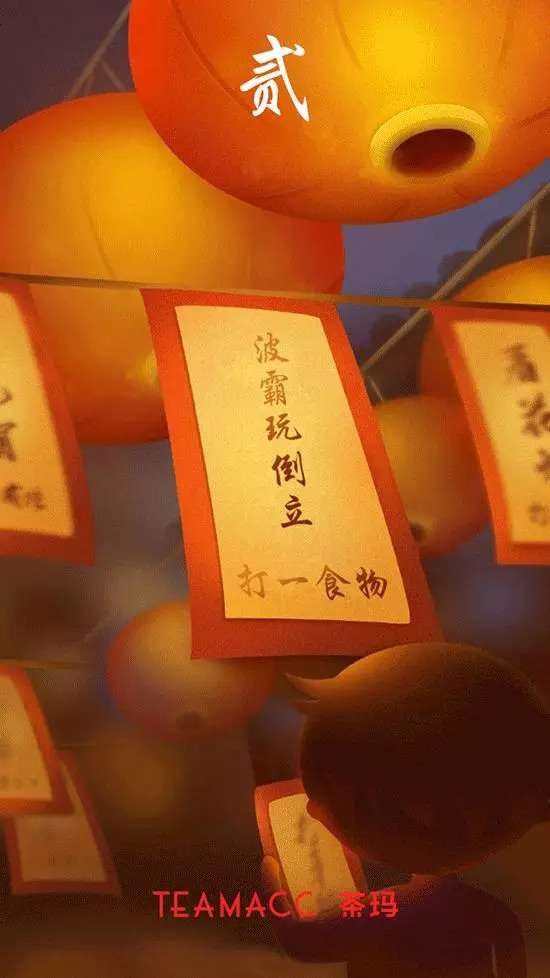 贰
波霸玩倒立
打一食物
TEAMACC 茶玛